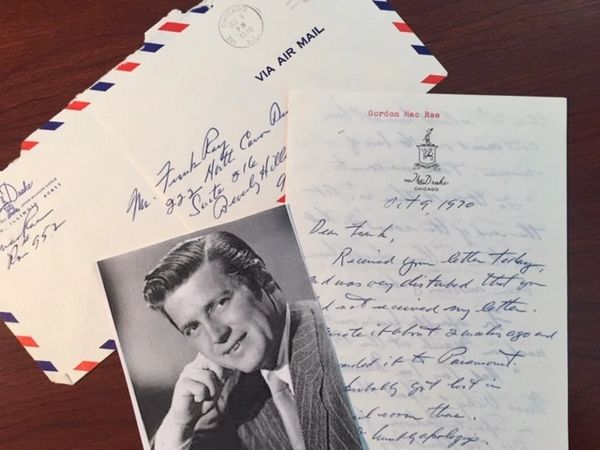 CHICAGO
OCT 9
PM
1970
ILL.
VIA AIR MAIL
Mr. Frank Ray
222 North Canon Dri
Suite 216
Beverly Hills
9
The Drake
ILLINOIS 60611
Rm 952
Gordon Mac Rae
The Drake
CHICAGO
Oct 9, 1970
Dear Frank,
Received your letter today,
and was very disturbed that you
did not received my letter.
wrote it about 2 weeks ago and
it to Paramount.
probably got lost in
room there.
humbly apologize.